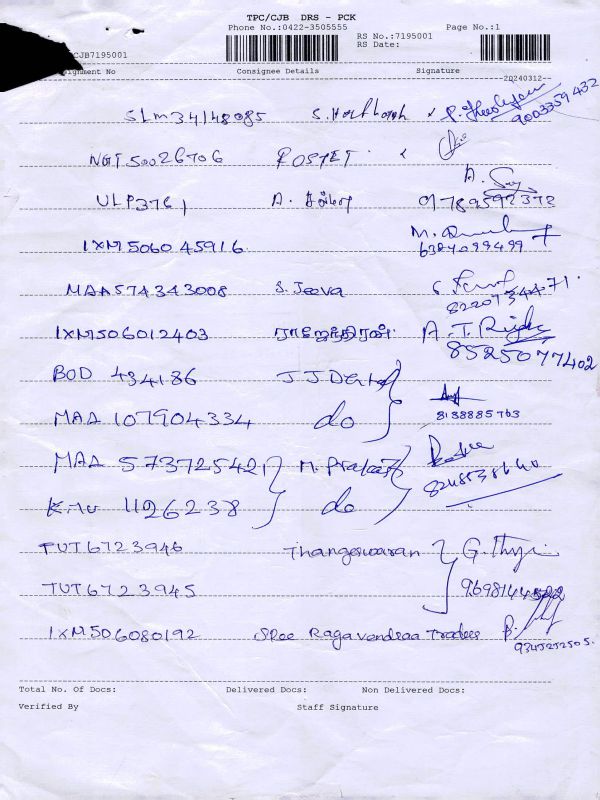 TPC/CJB DRS - PCK
Phone No.:0422-3505555 Page No.:1
RS No.:7195001
RS Date:
CJB7195001
Consignment No Consignee Details Signature
20240312--
SLM34148085 S.
9003359432
NGT50026706
ULP3761 A.
01789592372
IXM506045916 M.
6384099499
MAA574343008 S. Jeeva
IXM506012403 ராஜேந்திரன் A.T.
8525077402
BOD 434186 J J
MAA 107904334 do
8138885763
MAA 573725421 M. Prakash
1126238 do
TUT6723946 Thangeswaran G.
TUT6723945
IXM506080192 Sree Ragavendraa Traders
9345252505.
Total No. Of Docs: Delivered Docs: Non Delivered Docs:
Verified By Staff Signature